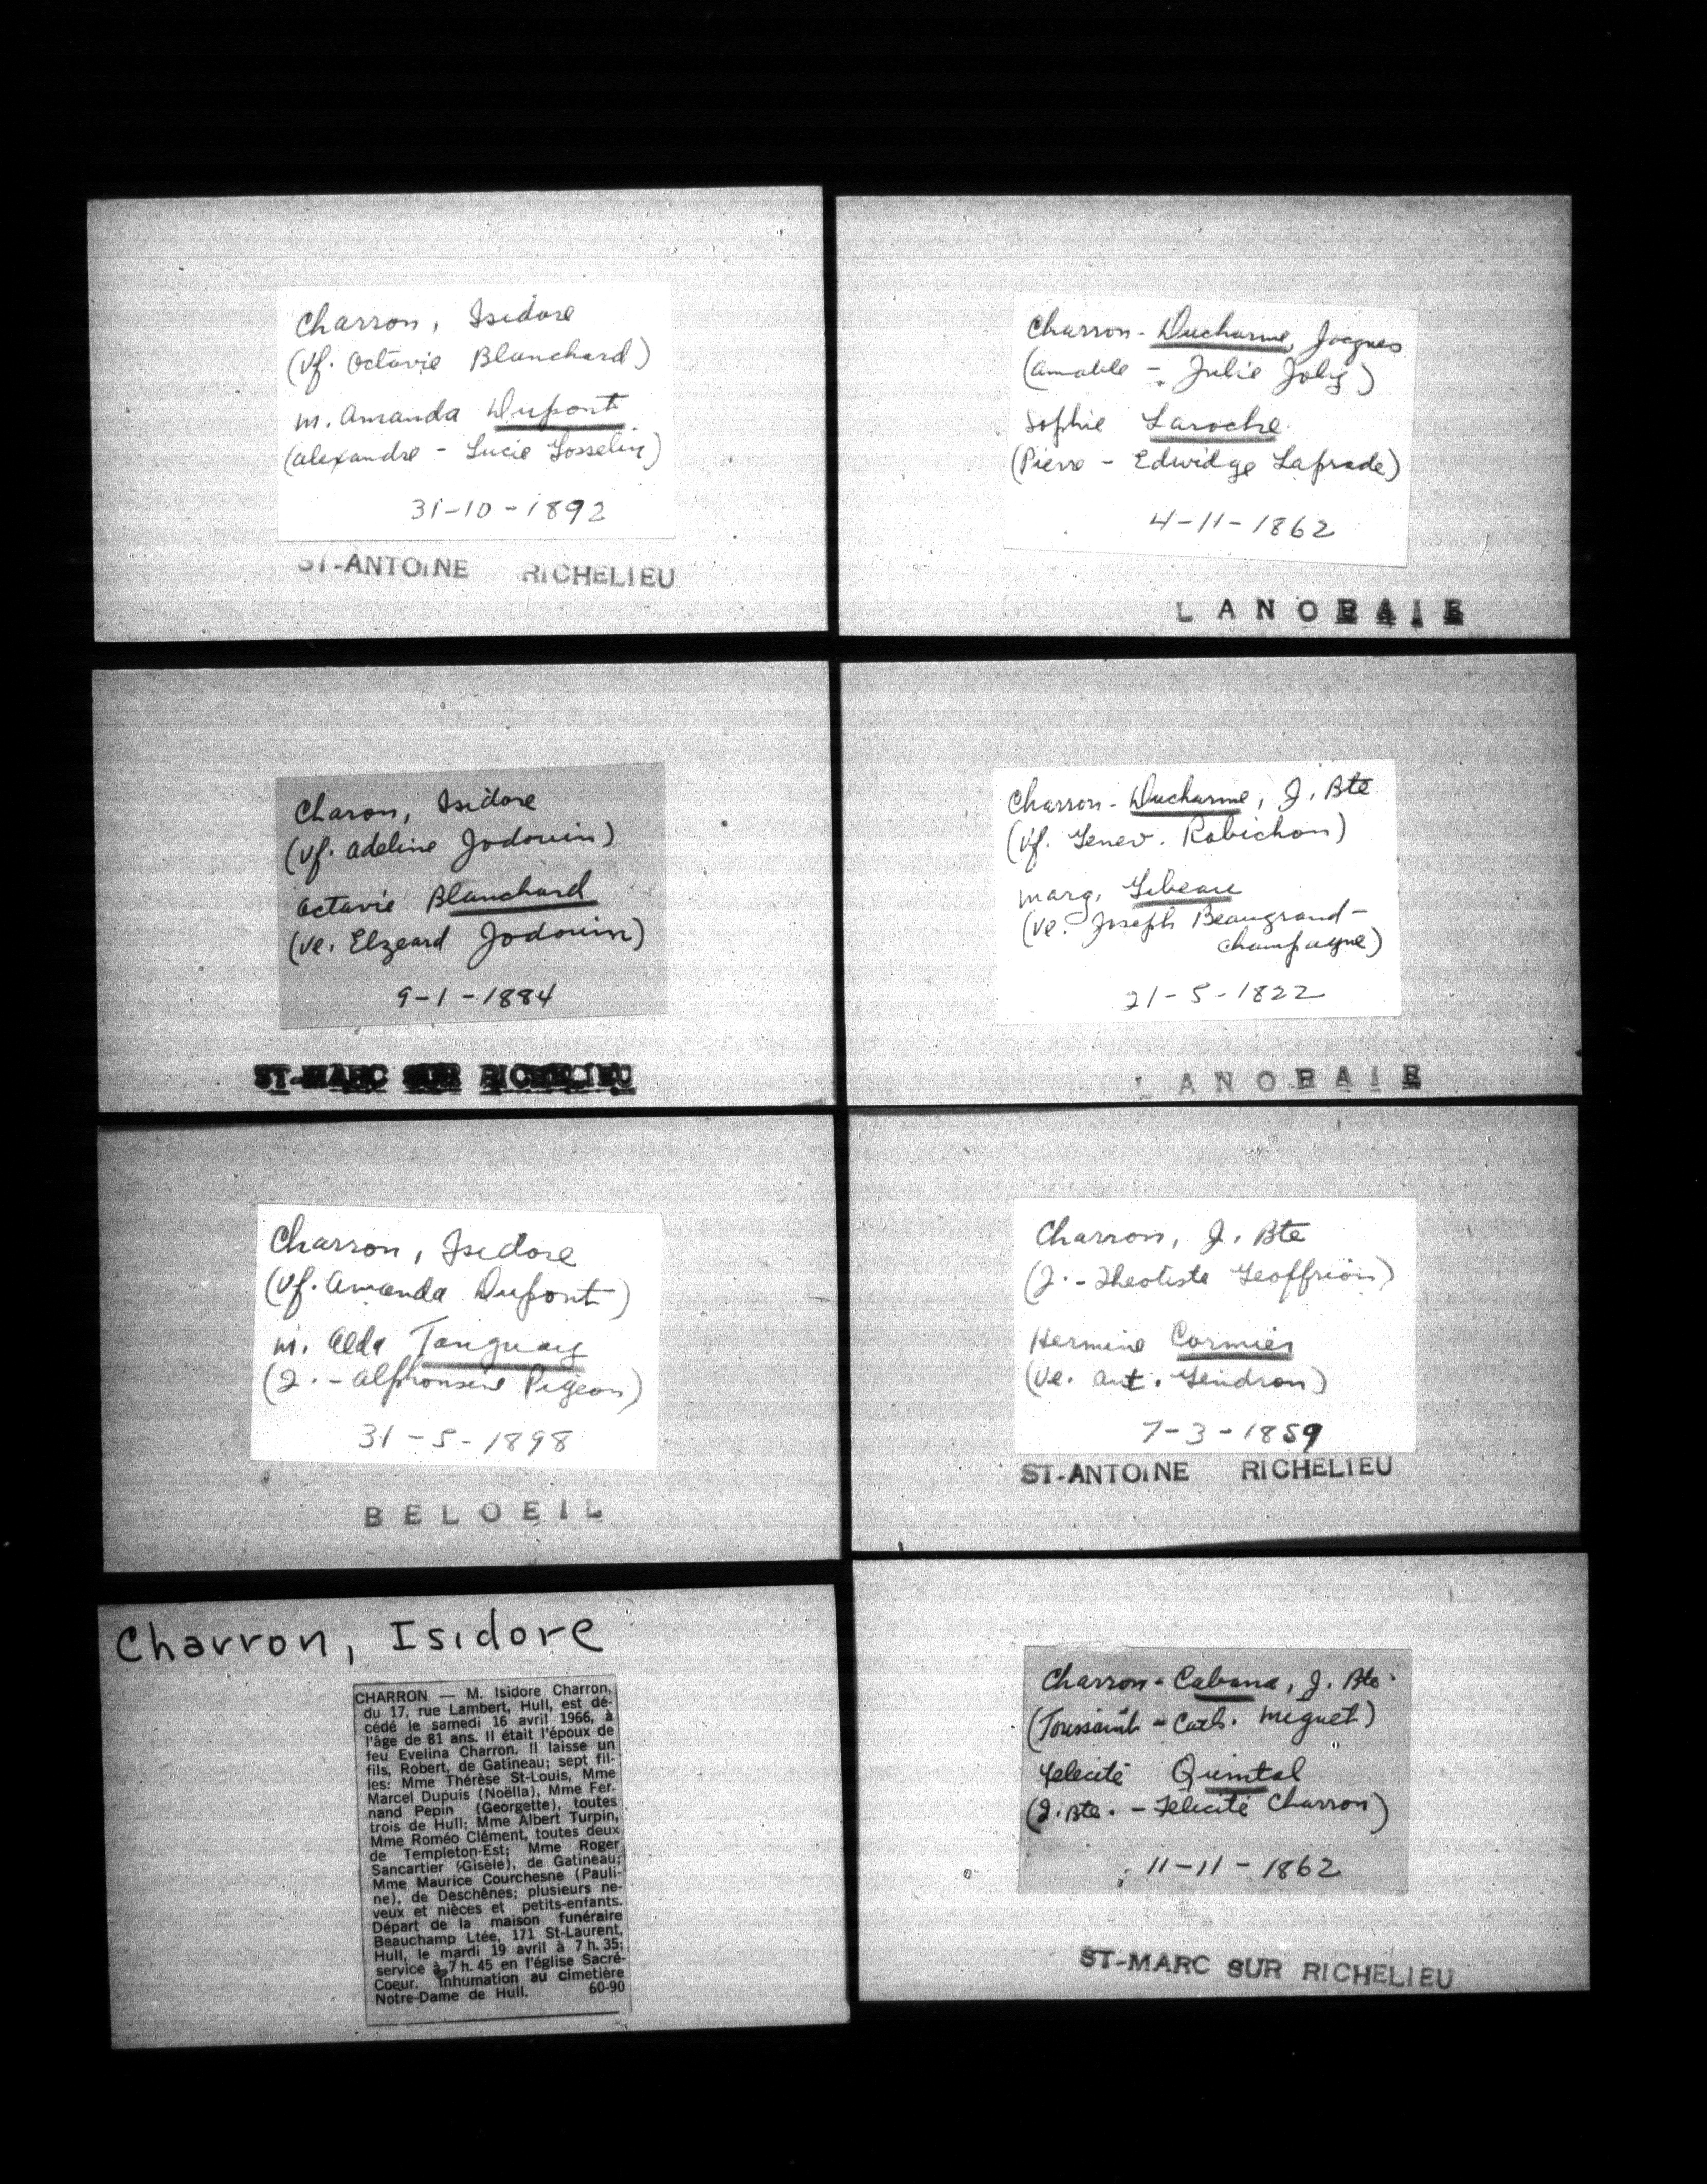 Charron, Isidore
(Vf. Octavie Blanchard)
m. Amanda Dupont
(Alexandre - Lucie Gosselin)
31-10-1892
ST-ANTOINE RICHELIEU
Charon, Isidore
(Vf. Adeline Jodouin)
Octavie Blanchard
(Ve. Elzeard Jodouin)
9-1-1884
ST-MARC SUR RICHELIEU
Charron, Isidore
(Vf. Amanda Dupont)
m. Alda Tanguay
(J. - Alphonsine Pigeon)
31-5-1898
BELOEIL
Charron, Isidore
CHARRON — M. Isidore Charron,
du 17, rue Lambert, Hull, est dé-
cédé le samedi 16 avril 1966, à
l'âge de 81 ans. Il était l'époux de
feu Evelina Charron. Il laisse un
fils, Robert, de Gatineau; sept fil-
les: Mme Thérèse St-Louis, Mme
Marcel Dupuis (Noëlla), Mme Fer-
nand Pepin (Georgette), toutes
trois de Hull; Mme Albert Turpin,
Mme Roméo Clément, toutes deux
de Templeton-Est; Mme Roger
Sancartier (Gisèle), de Gatineau;
Mme Maurice Courchesne (Pauli-
ne), de Deschênes; plusieurs ne-
veux et nièces et petits-enfants.
Départ de la maison funéraire
Beauchamp Ltée, 171 St-Laurent,
Hull, le mardi 19 avril à 7 h. 35;
service à 7 h. 45 en l'église Sacré-
Coeur. Inhumation au cimetière
Notre-Dame de Hull. 60-90
Charron-Ducharme, Jacques
(Amable - Julie Joly)
Sophie Laroche
(Pierre - Edwidge Laprade)
4-11-1862
LANORAIE
Charron-Ducharme, J. Bte
(Vf. Genev. Robichon)
Marg. Gibeau
(Ve. Joseph Beaugrand-
Champagne)
21-5-1822
LANORAIE
Charron, J. Bte
(J. - Theotiste Geoffrion)
Hermine Cormier
(Ve. Ant. Gendron)
7-3-1859
ST-ANTOINE RICHELIEU
Charron-Cabana, J. Bte
(Toussaint - Cath. Miguet)
Felicité Quintal
(J. Bte. - Felicité Charron)
11-11-1862
ST-MARC SUR RICHELIEU